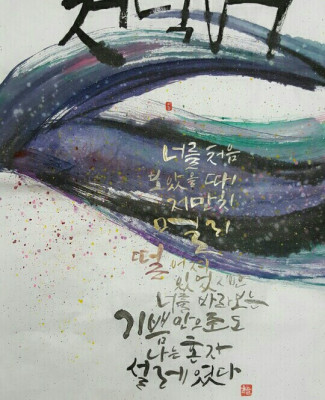 너를 처음
보았을 때
저만치
멀리
떨어져
있었지만
너를 바라보는
기쁨만으로도
나는 혼자
설레였다